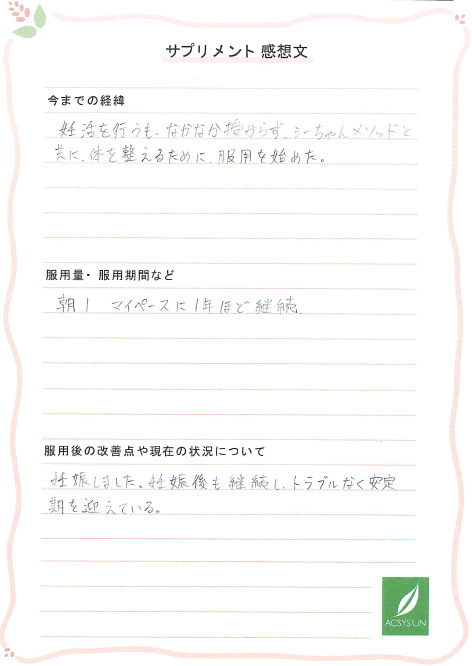 サプリメント 感想文
今までの経緯
妊活を行うも、なかなか授からず、シーちゃんメソッドと
共に、体を整えるために、服用を始めた。
服用量・服用期間など
朝1 マイペースに1年ほど継続.
服用後の改善点や現在の状況について
妊娠しました、妊娠後も継続し、トラブルなく安定
期を迎えている。
ACSYSUN